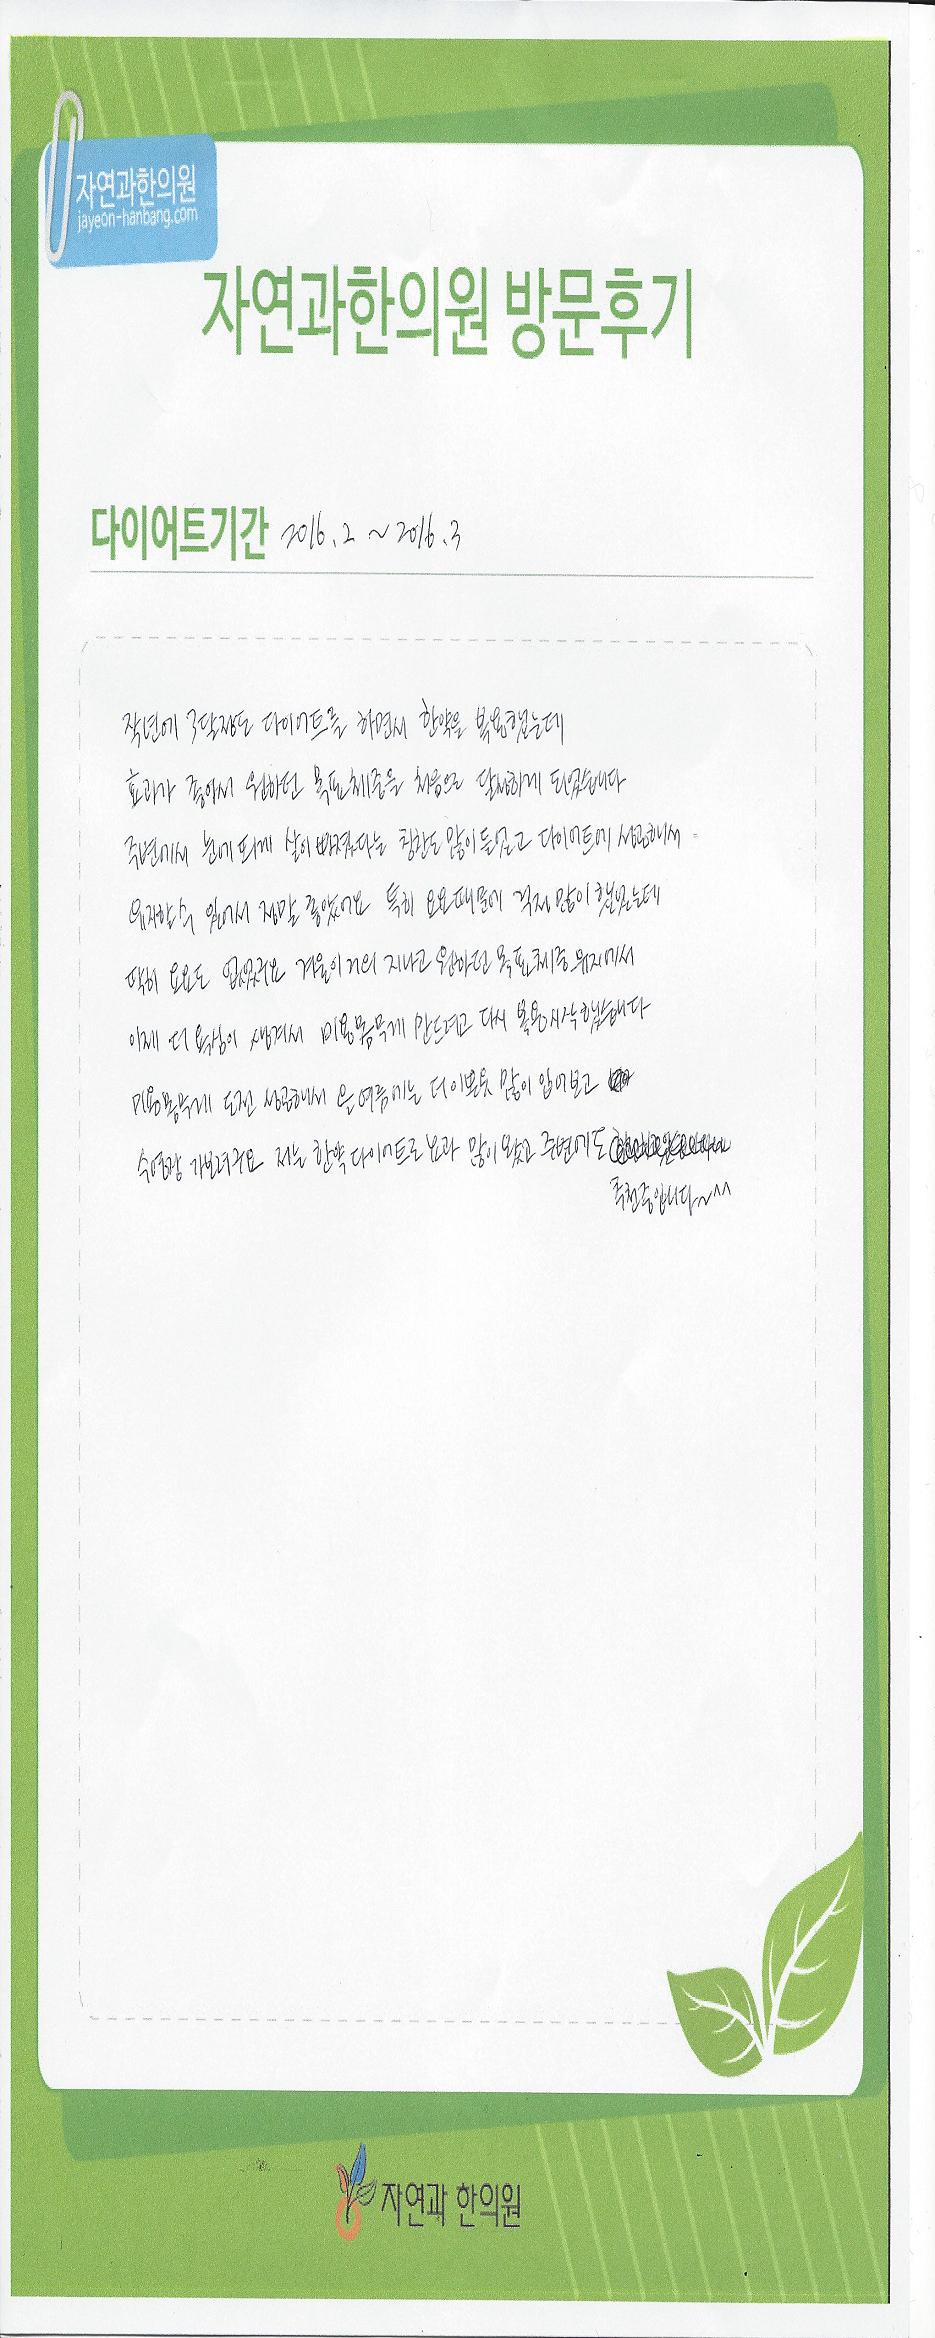 자연과한의원
jayeon-hanbang.com
자연과한의원 방문후기
다이어트기간 2016.2 ~ 2016.3
작년에 3달정도 다이어트를 하면서 한약을 복용했는데
효과가 좋아서 원하던 목표체중을 처음으로 달성하게 되었습니다
주변에서 눈에 띄게 살이 빠졌다는 칭찬도 많이 들었고 다이어트에 성공해서
유지할 수 있어서 정말 좋았어요 특히 요요때문에 걱정 많이 했었는데
딱히 요요도 없었구요 겨울이 거의 지나고 원하던 목표체중 유지해서
이제 더 욕심이 생겨서 미용몸무게 만드려고 다시 복용시작했습니다
미용몸무게 도전 성공해서 올 여름에는 더 이쁜옷 많이 입어보고
수영장 가보려구요 저는 한약 다이어트로 효과 많이 봤고 주변에도
추천중입니다~^^
자연과 한의원